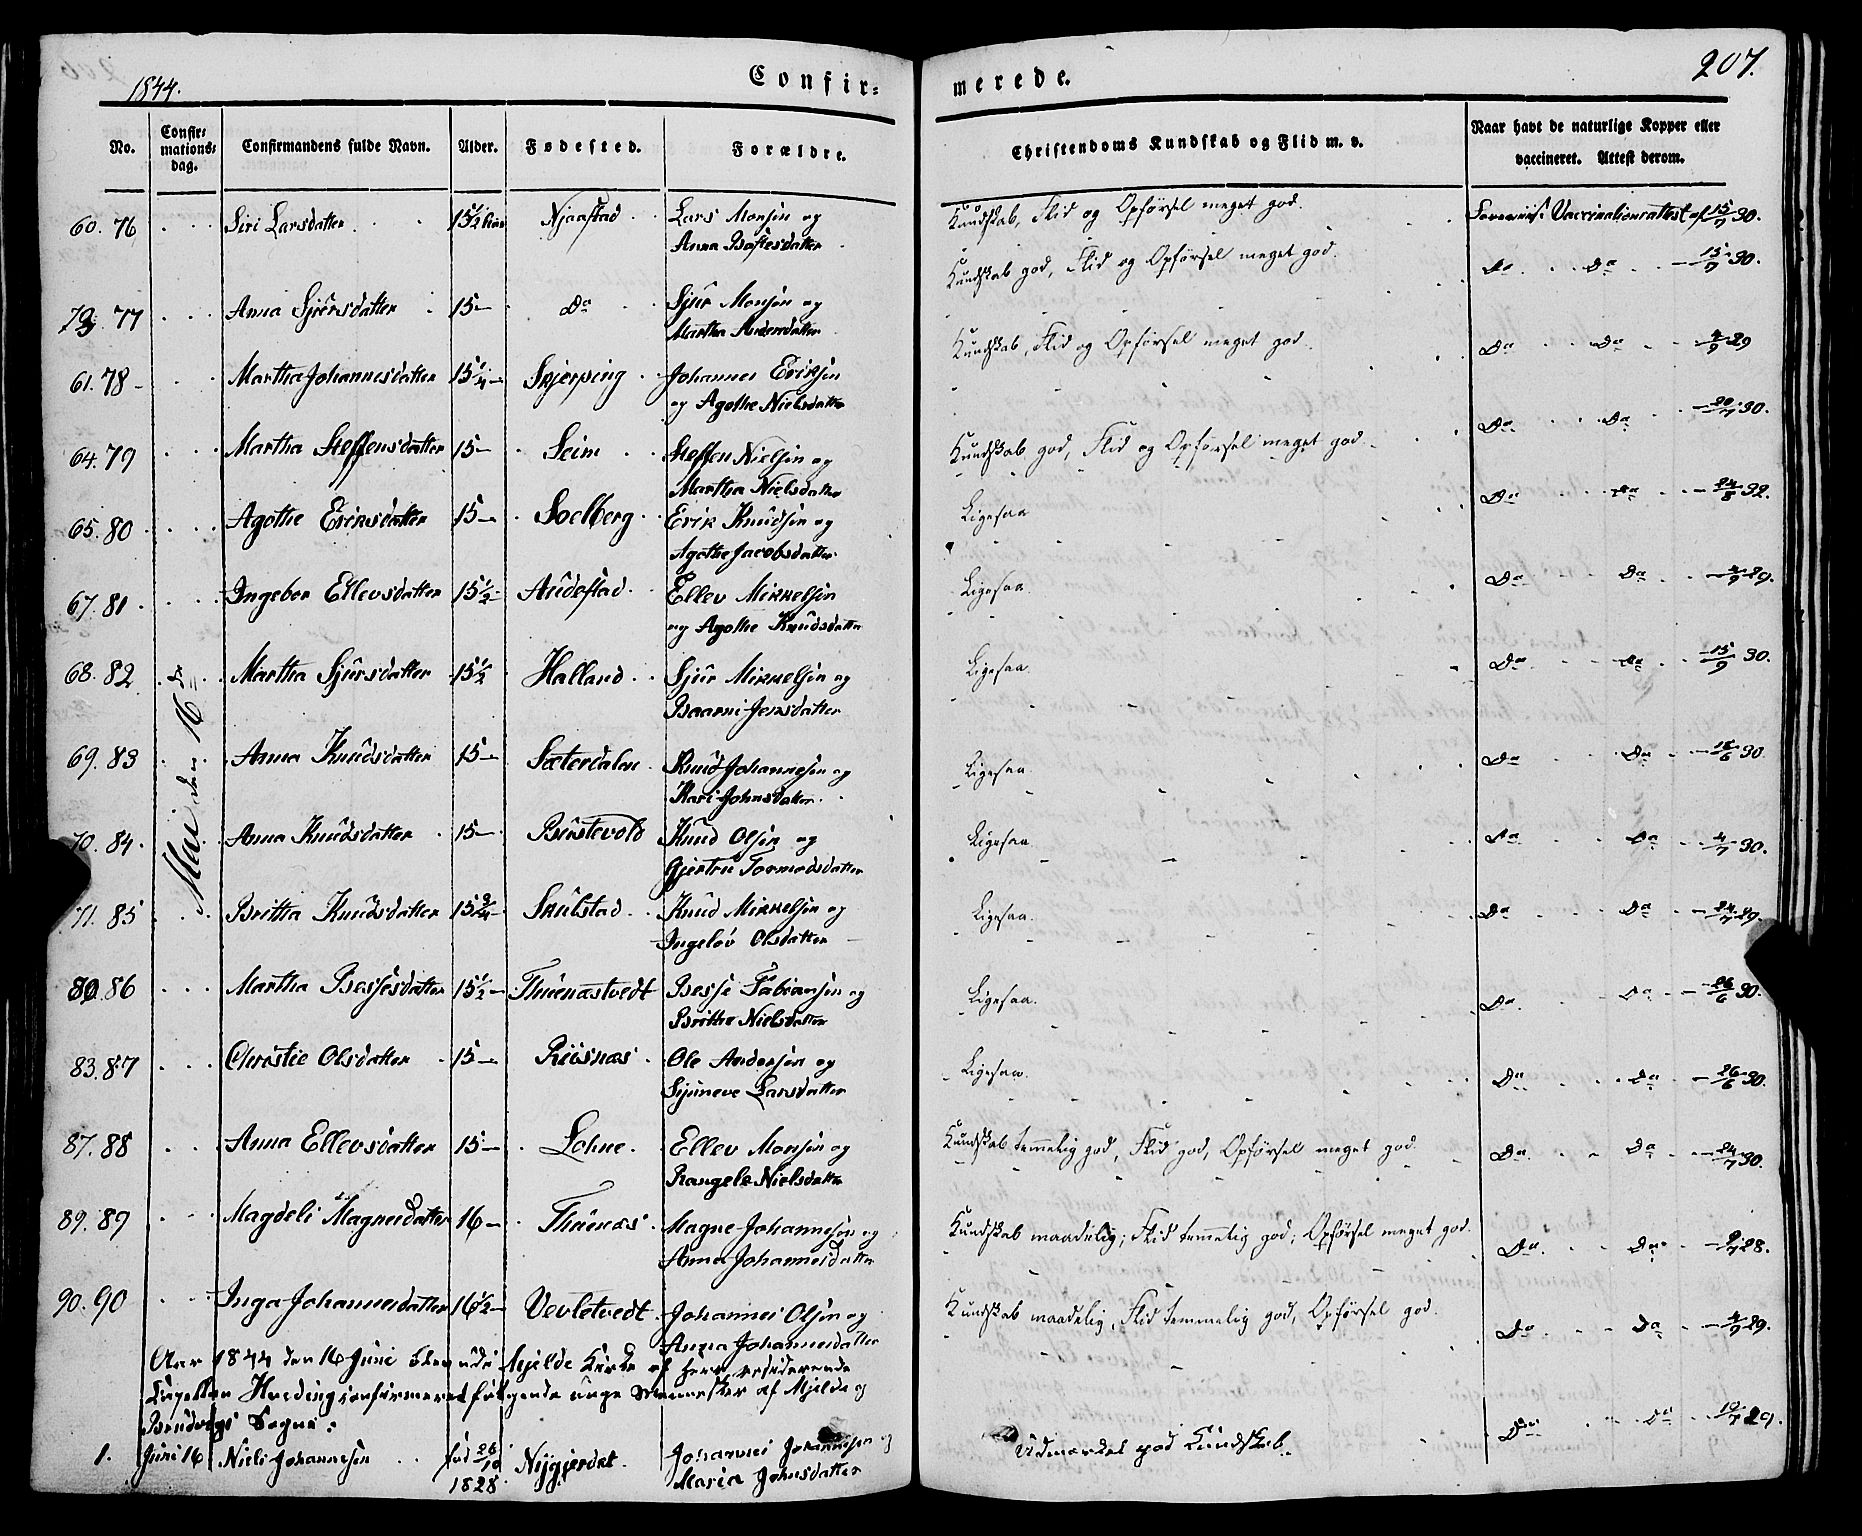 1844.
Confir=
merede.
207.
No.
Confir=
mations=
dag.
Confirmandens fulde Navn.
Alder.
Fødested.
Forældre.
Christendoms Kundskab og Flid m. v.
Naar havt de naturlige Kopper eller
vaccineret. Attest derom.
Mai den 16de
60. 76 Siri Larsdatter 15 1/2 Njaastad Lars Monsen og Kundskab, Flid og Opførsel meget god. Vaccinationsattest af 15/9 30.
Anna
79 77 Anna Sjursdatter 15 Do Sjur Monsen og Kundskab god, Flid og Opførsel meget god. Do Do 15/9 30.
Martha
61. 78 Martha Johannesdatter 15 1/4 Skjerping Johannes Eriksen Kundskab, Flid og Opførsel meget god. Do Do 4/9 29
og Agothe Nielsdatter
64. 79 Martha Steffensdatter 15 Seim Steffen Nielsen og Kundskab god, Flid og Opførsel meget god. Do Do 20/7 30.
Martha Nielsdatter
65. 80 Agothe Eriksdatter 15 Soelberg Erik Knudsen og Ligesaa Do Do 24/8 32.
Agothe Jacobsdatter
67. 81 Ingebor Ellevsdatter 15 1/2 Audestad Ellev Mikkelsen Ligesaa Do Do 4/9 29.
og Agothe Knudsdatter
68. 82 Martha Sjursdatter 15 1/2 Halland Sjur Mikkelsen og Ligesaa Do Do 15/9 30.
Jensdatter
69. 83 Anna Knudsdatter 15 Sæterdalen Knud Johannesen og Ligesaa Do Do 30.
Kari Johnsdatter
70. 84 Anna Knudsdatter 15 Brustevold Knud Olsen og Ligesaa Do Do 4/7 30.
Gjertru Tormodsdatter
71. 85 Britha Knudsdatter 15 3/4 Skulstad Knud Mikkelsen og Ligesaa Do Do 24/7 29.
Ingelev Olsdatter
80. 86 Martha Bessesdatter 15 1/2 Thuenæstvedt Besse Fabiansen og Ligesaa. Do Do 26/6 30.
Brithe Nielsdatter
83. 87 Christie Olsdatter 15 Riisnæs Ole Andersen og Ligesaa. Do Do 26/6 30.
Sijuneve Larsdatter
87. 88 Anna Ellevsdatter 15 Lohne Ellev Monsen og Kundskab temmelig god, Flid god, Opførsel meget god Do Do 24/7 30.
Rangele Nielsdatter
89. 89 Magdeli Magnesdatter 16 Thuenæs Magne Johannesen og Kundskab maadelig; Flid temmelig god; Opførsel meget god. Do Do 28.
Anna Johannesdatter
90. 90 Inga Johannesdatter 16 1/2 Vevletvedt Johannes Olsen og Kundskab maadelig, Flid temmelig god, Opførsel god. Do Do 4/9 29.
Anna Johannesdatter
Aar 1844 den 16 Juni blev udi Mjelde Kirke af Herr residerende
Capellan Hvedingconfirmeret følgende unge Mennesker af Mjelde og
Bruvigs Sogne:
1. Juni 16 Niels Johannesen fød 26/10 1828 Nygjerdet Johannes Johannesen og Udmærket god Kundskab. Do Do 10/7 29.
Maria Johnsdatter